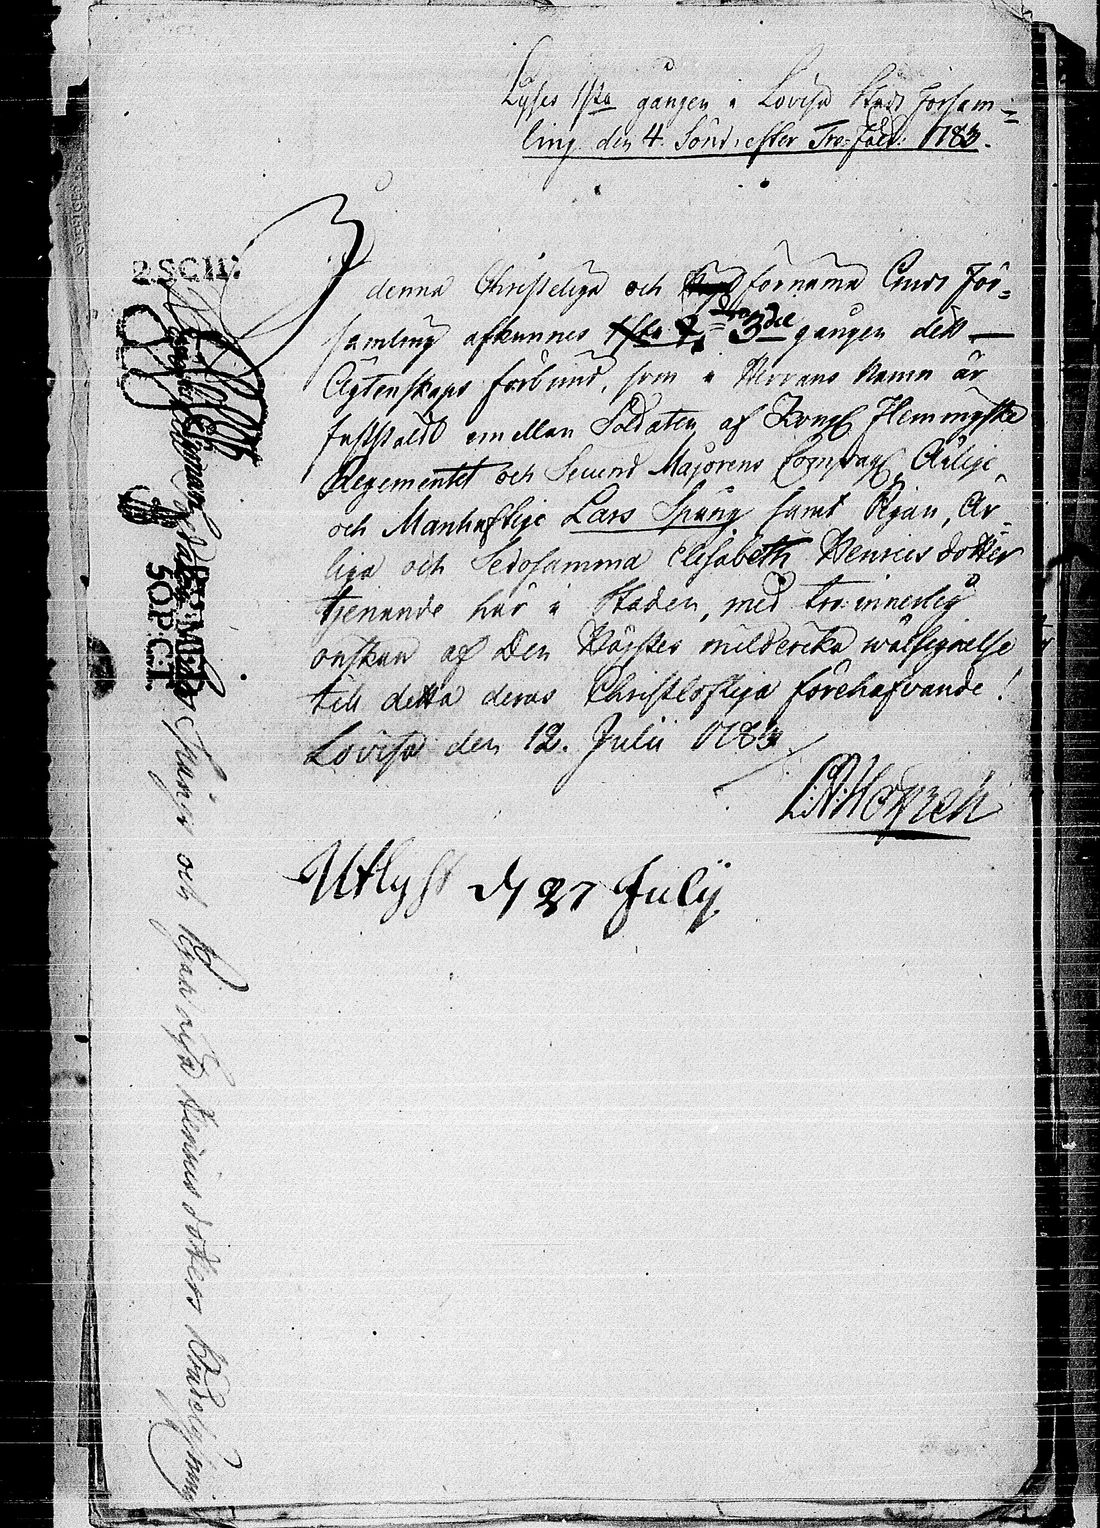 Lyses 1sta gången i Lovisa Stads Försam=
ling den 4. Sönd. efter Tref: Söd: 1783.
I denna Christeliga och förnäma Guds För=
samling afkunnes 1sta 2. 3die gången dett
Ägtenskaps förbund, som i Herrans namn är
fastställdt emellan Soldaten af Kongl
Regementet och Second Majorens Compagn Ärlige
och Manhaftige Lars Spång samt Pigan, Är=
liga och Sedosamma Elisabeth Henrics dotter
tjenande här i Staden, med tro innerlig
önskan af Den Högstes milderika wälsignelse
till detta deras Christloflija förehafvande!
Lovisa den 12. Julii 1783
Utlyst d 27 Julij
2.SCIL:
50P.C.T.
Spångs och Pigan Lisa Henricsdotters Kundelysning